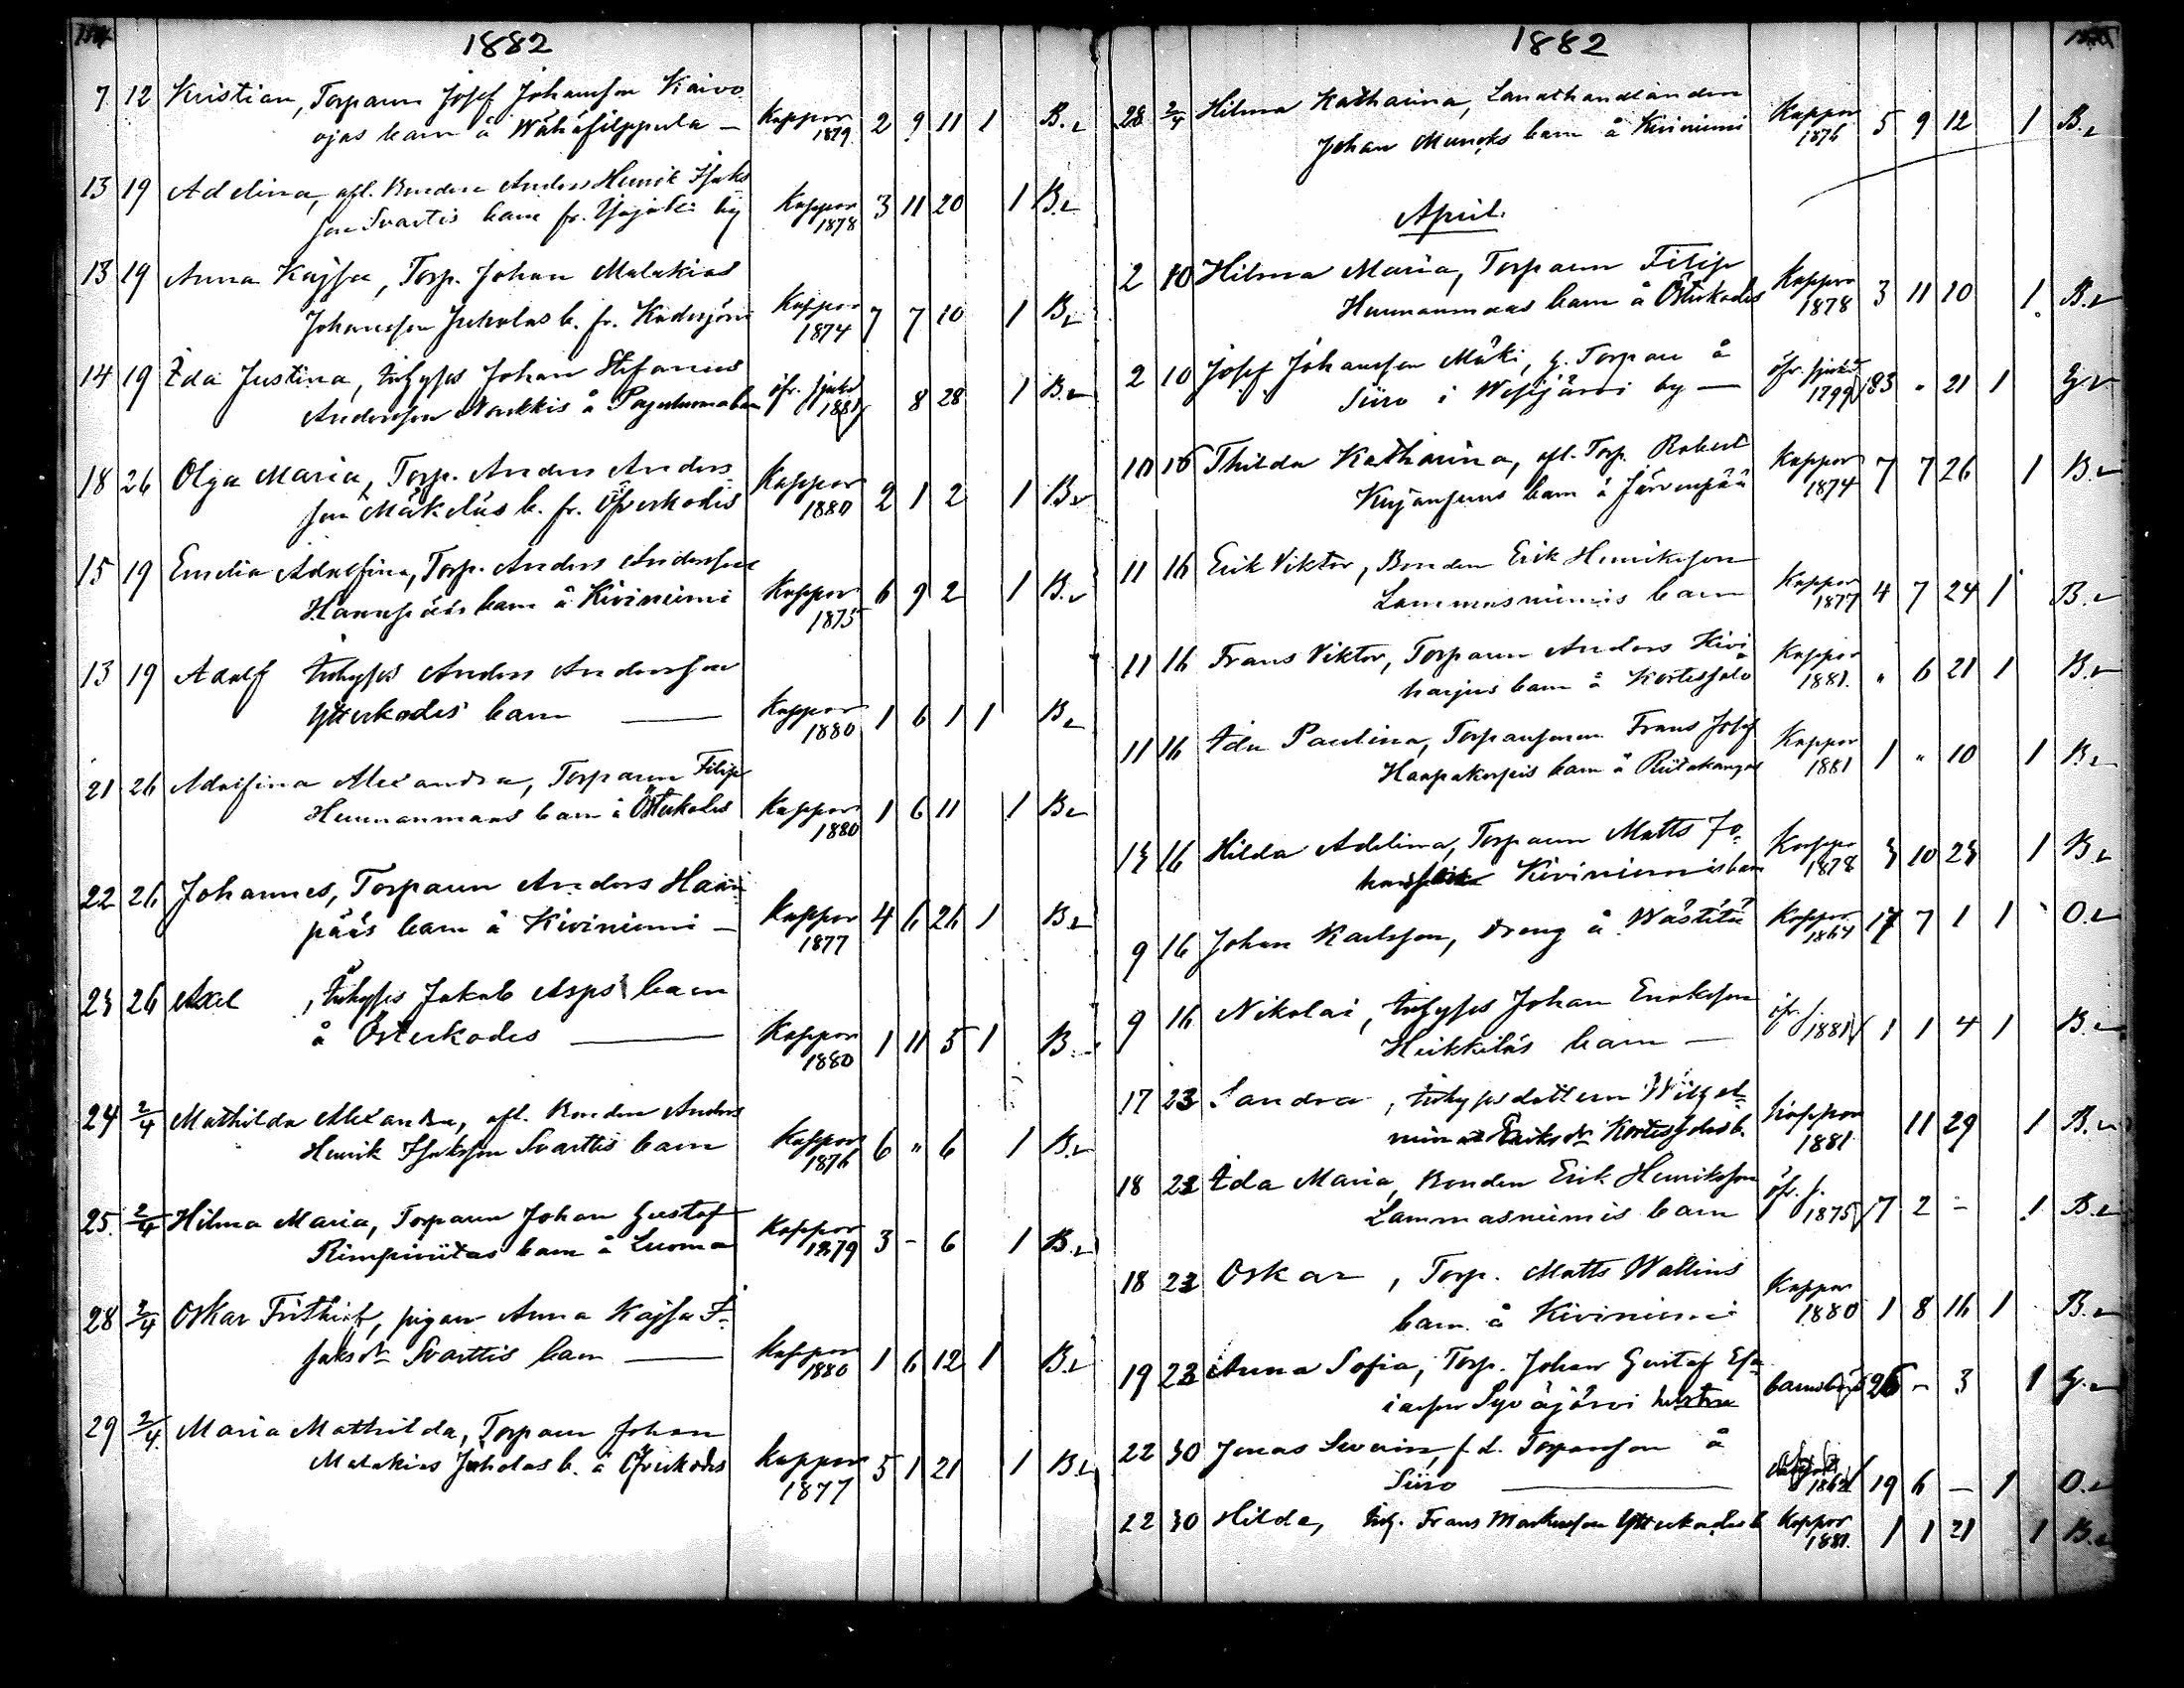 1882
7 12 Kristian, Torparen Josef Johansson Kaivo-
ojas barn å Wähäfilppula — Koppor 1879 2 9 11 1 B.
13 19 Adelina, afl. Bonden Anders Henrik Isaks-
son Svartis barn fr. by Koppor 1878 3 11 20 1 B.
13 19 Anna Kajsa, Torp. Johan Malakias
Johansson Juholas b. fr. Koppor 1874 7 7 10 1 B.
14 19 Ida Justina, inhyses Johan Stefanus
Andersson å öfr. sjukd. 1881 8 28 1 B.
18 26 Olga Maria, Torp. Anders Anders-
son Mäkeläs b. fr. Öfverkodis Koppor 1880 2 1 2 1 B.
15 19 Emelia Adolfina, Torp. Anders Andersson
Haanpääs barn å Kiviniemi Koppor 1875 6 9 2 1 B.
13 19 Adolf inhyses Anders Andersson
Ytterkodes barn — Koppor 1880 1 6 1 1 B.
21 26 Adolfina Alexandra, Torparen Filip
Hemmanmaas barn å Österkodes Koppor 1880 1 6 11 1 B.
22 26 Johannes, Torparen Anders Haan-
pääs barn å Kiviniemi — Koppor 1877 4 6 26 1 B.
23 26 Axel , inhyses Jakob Asps barn
å Österkodes — Koppor 1880 1 11 5 1 B.
24 2/4 Mathilda Alexandra, afl. Bonden Anders
Henrik Isaksson Svarttis barn Koppor 1876 6 " 6 1 B.
25 2/4 Hilma Maria, Torparen Johan Gustaf
Rimpiniitas barn å Luoma Koppor 1879 3 - 6 1 B.
28 2/4 Oskar Frithiof, pigan Anna Kajsa I-
saksdr Svarttis barn — Koppor 1880 1 6 12 1 B.
29 2/4 Maria Mathilda, Torparen Johan
Malakias Juholas b. å Öfverkodes Koppor 1877 5 1 21 1 B.
1882
28 2/4 Hilma Katharina, Lanthandlanden
Johan Muncks barn å Kiviniemi Koppor 1876 5 9 12 1 B.
April.
2 10 Hilma Maria, Torparen Filip
Hemmanmaas barn å Österkodes Koppor 1878 3 11 10 1 B.
2 10 Josef Johansson Mäki, g. Torpare å
Siiro i Wesijärvi by — öfr. sjukd. 1799 83 " 21 1 G.
10 16 Thilda Katharina, afl. Torp. Robert
Kujanpuus barn å Järvenpää Koppor 1874 7 7 26 1 B.
11 16 Erik Viktor, Bonden Erik Henriksson
Lammasniemis barn Koppor 1877 4 7 24 1 B.
11 16 Frans Viktor, Torparen Anders Kivi-
harjus barn å Kortessalo Koppor 1881. " 6 21 1 B.
11 16 Ida Paulina, Torparsonen Frans Josef
Haapakorpis barn å Riitakangas Koppor 1881 1 " 10 1 B.
13 16 Hilda Adelina, Torparen Matts Jo-
Kiviniemis barn Koppor 1878 3 10 23 1 B.
9 16 Johan Karlsson, dräng å Wästilä Koppor 1864 17 7 1 1 O.
9 16 Nikolai, inhyses Johan Enoksson
Heikkiläs barn — öfr. s. 1881 1 1 4 1 B.
17 23 Sandra , inhysesdottern Wilhel-
mina Eriksdr Kortesjokis b. Koppor 1881 11 29 1 B.
18 23 Ida Maria, Bonden Erik Henriksson
Lammasniemis barn öfr. s. 1875 7 2 - 1 B.
18 23 Oskar , Torp. Matts Wallins
barn å Kiviniemi Koppor 1880 1 8 16 1 B.
19 23 Anna Sofia, Torp. Johan Gustaf Esa-
iasson Syväjärvi hustru barnsbörd 26 - 3 1 G.
22 30 Jonas Severin, f.d. Torparson å
Siiro — 1862 19 6 — 1 O.
22 30 Hilda, inh. Frans Markusson Ytterkodes b Koppor 1881. 1 1 21 1 B.